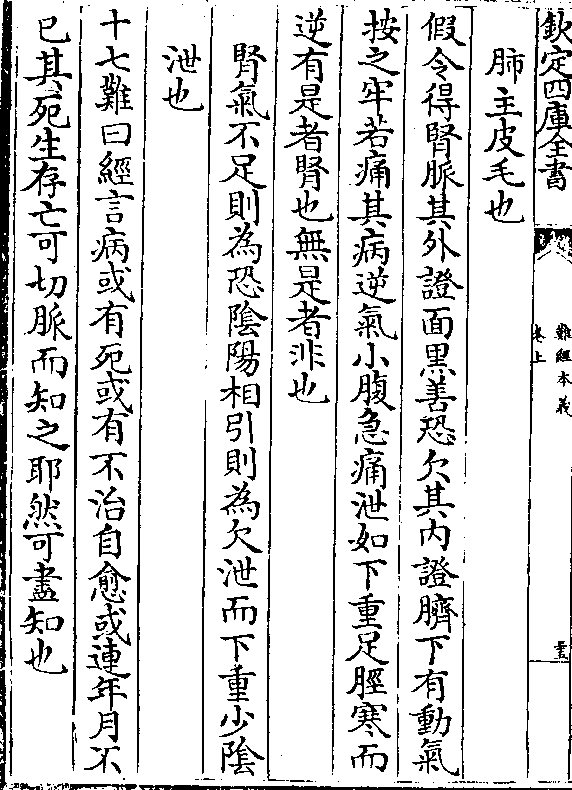 欽定四庫全書
難經本義
卷上
肺主皮毛也
假令得腎脈其外證面黒善恐欠其内證臍下有動氣
按之牢若痛其病逆氣小腹急痛泄如下重足脛寒而
逆有是者腎也無是者非也
腎氣不足則為恐陰陽相引則為欠泄而下重少陰
泄也
十七難曰經言病或有死或有不治自愈或連年月不
已其死生存亡可切脈而知之耶然可盡知也